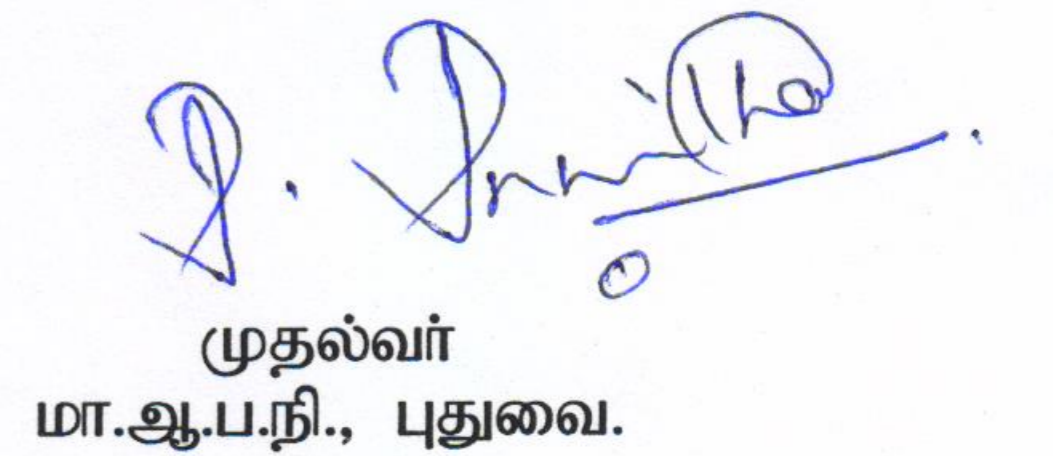 முதல்வர்
மா.ஆ.ப.நி., புதுவை.